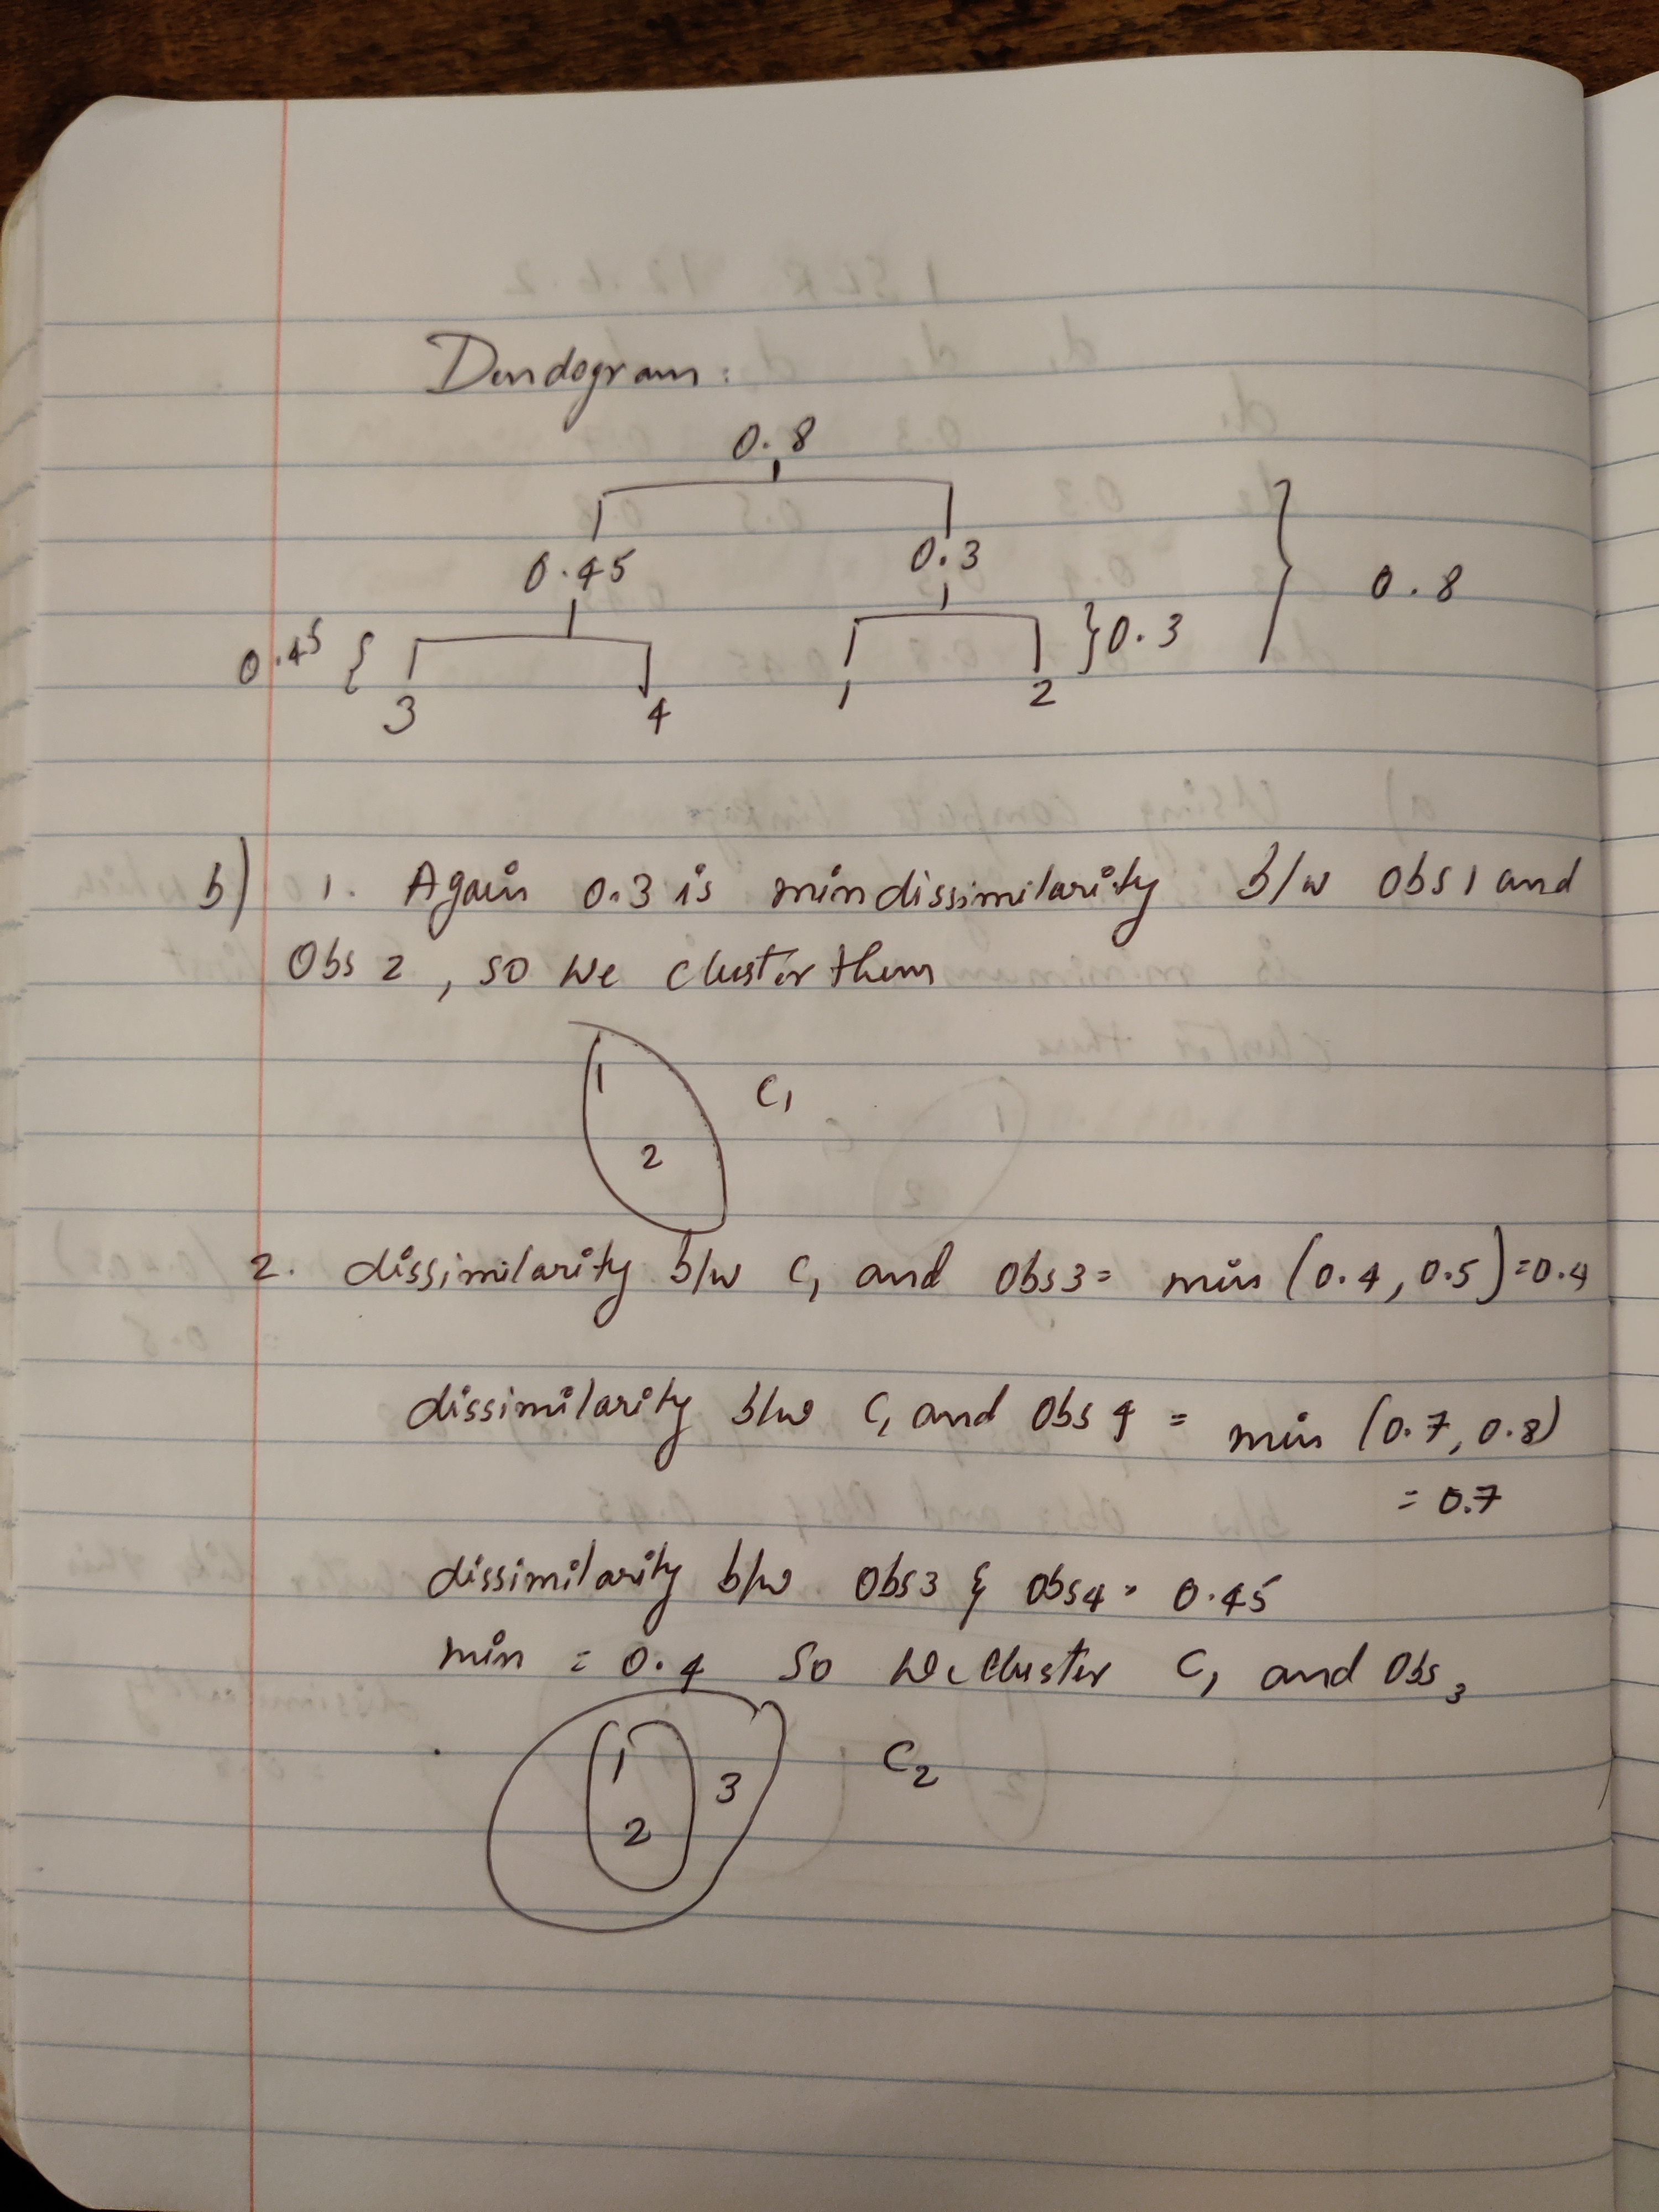 Dendogram:
0.8
0.45 0.3
0.45 { } 0.3 } 0.8
3 4 1 2
b) 1. Again 0.3 is min dissimilarity b/w obs 1 and
Obs 2, so we cluster them
1 C1
2
2. dissimilarity b/w C1 and obs3 = min (0.4, 0.5) = 0.4
dissimilarity b/w C1 and Obs 4 = min (0.7, 0.8)
= 0.7
dissimilarity b/w Obs3 & Obs4 = 0.45
min = 0.4 So We cluster C1 and Obs3
1 3 C2
2